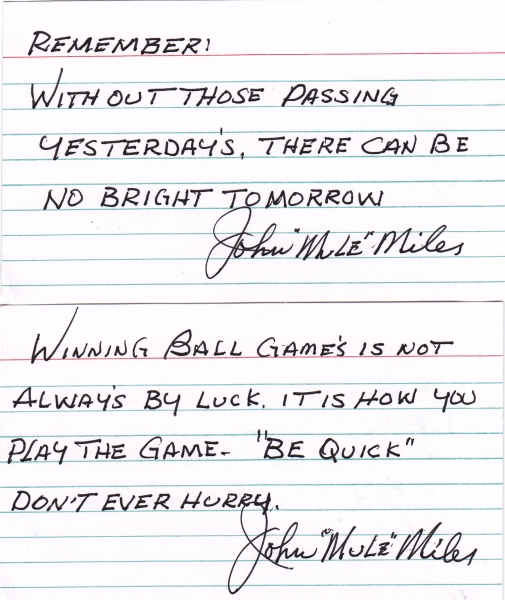 REMEMBER!
WITHOUT THOSE PASSING
YESTERDAY'S, THERE CAN BE
NO BRIGHT TOMORROW
John "MULE" Miles
WINNING BALL GAME'S IS NOT
ALWAY'S BY LUCK. IT IS HOW YOU
PLAY THE GAME- "BE QUICK"
DON'T EVER HURRY.
John "MULE" Miles